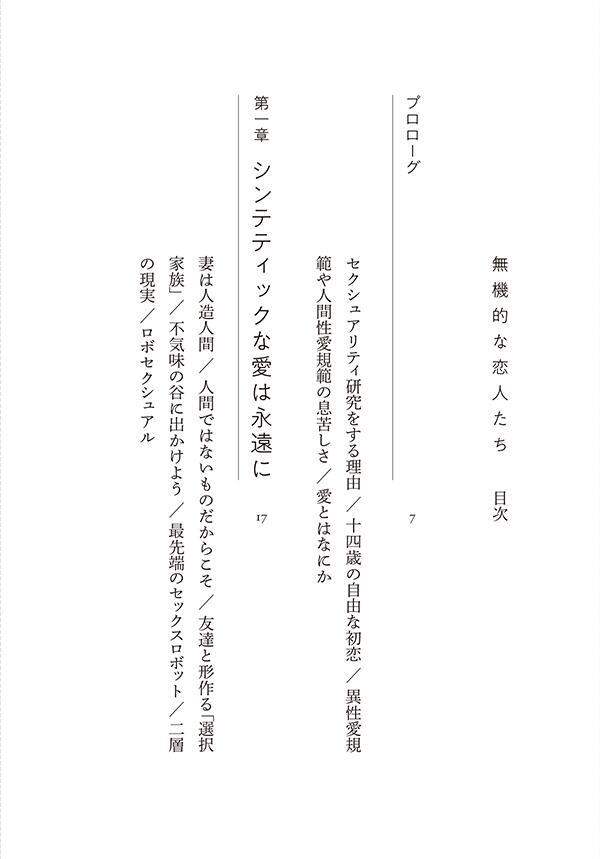 無機的な恋人たち　目次
プロローグ　7
セクシュアリティ研究をする理由／十四歳の自由な初恋／異性愛規
範や人間性愛規範の息苦しさ／愛とはなにか
第一章　シンテティックな愛は永遠に　17
妻は人造人間／人間ではないものだからこそ／友達と形作る「選択
家族」／不気味の谷に出かけよう／最先端のセックスロボット／二層
の現実／ロボセクシュアル